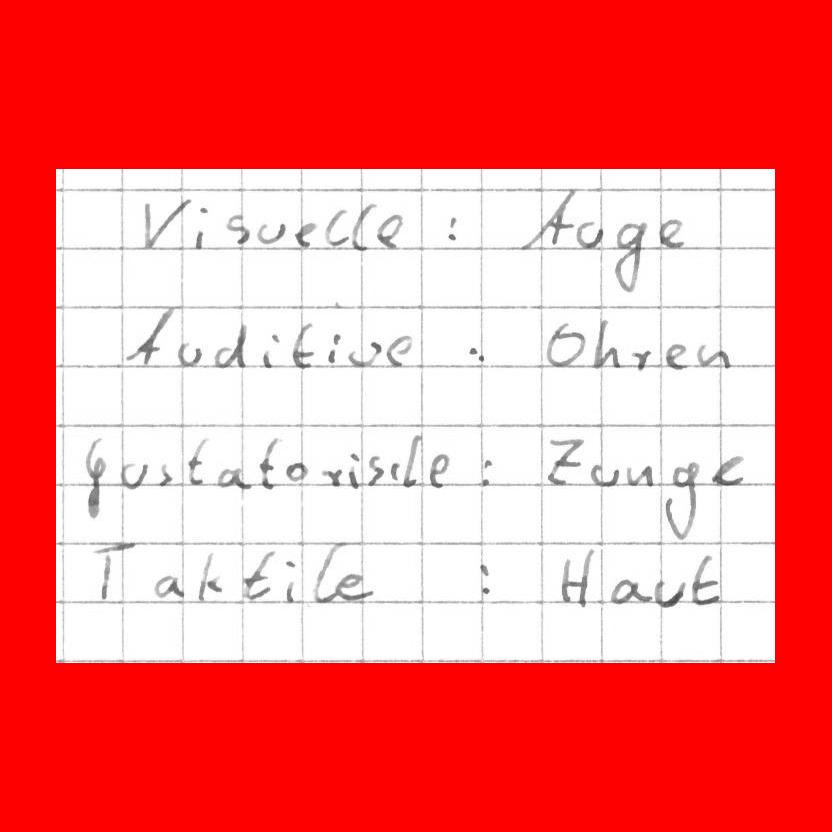 Visuelle : Auge
Auditive : Ohren
Gustatorische : Zunge
Taktile : Haut